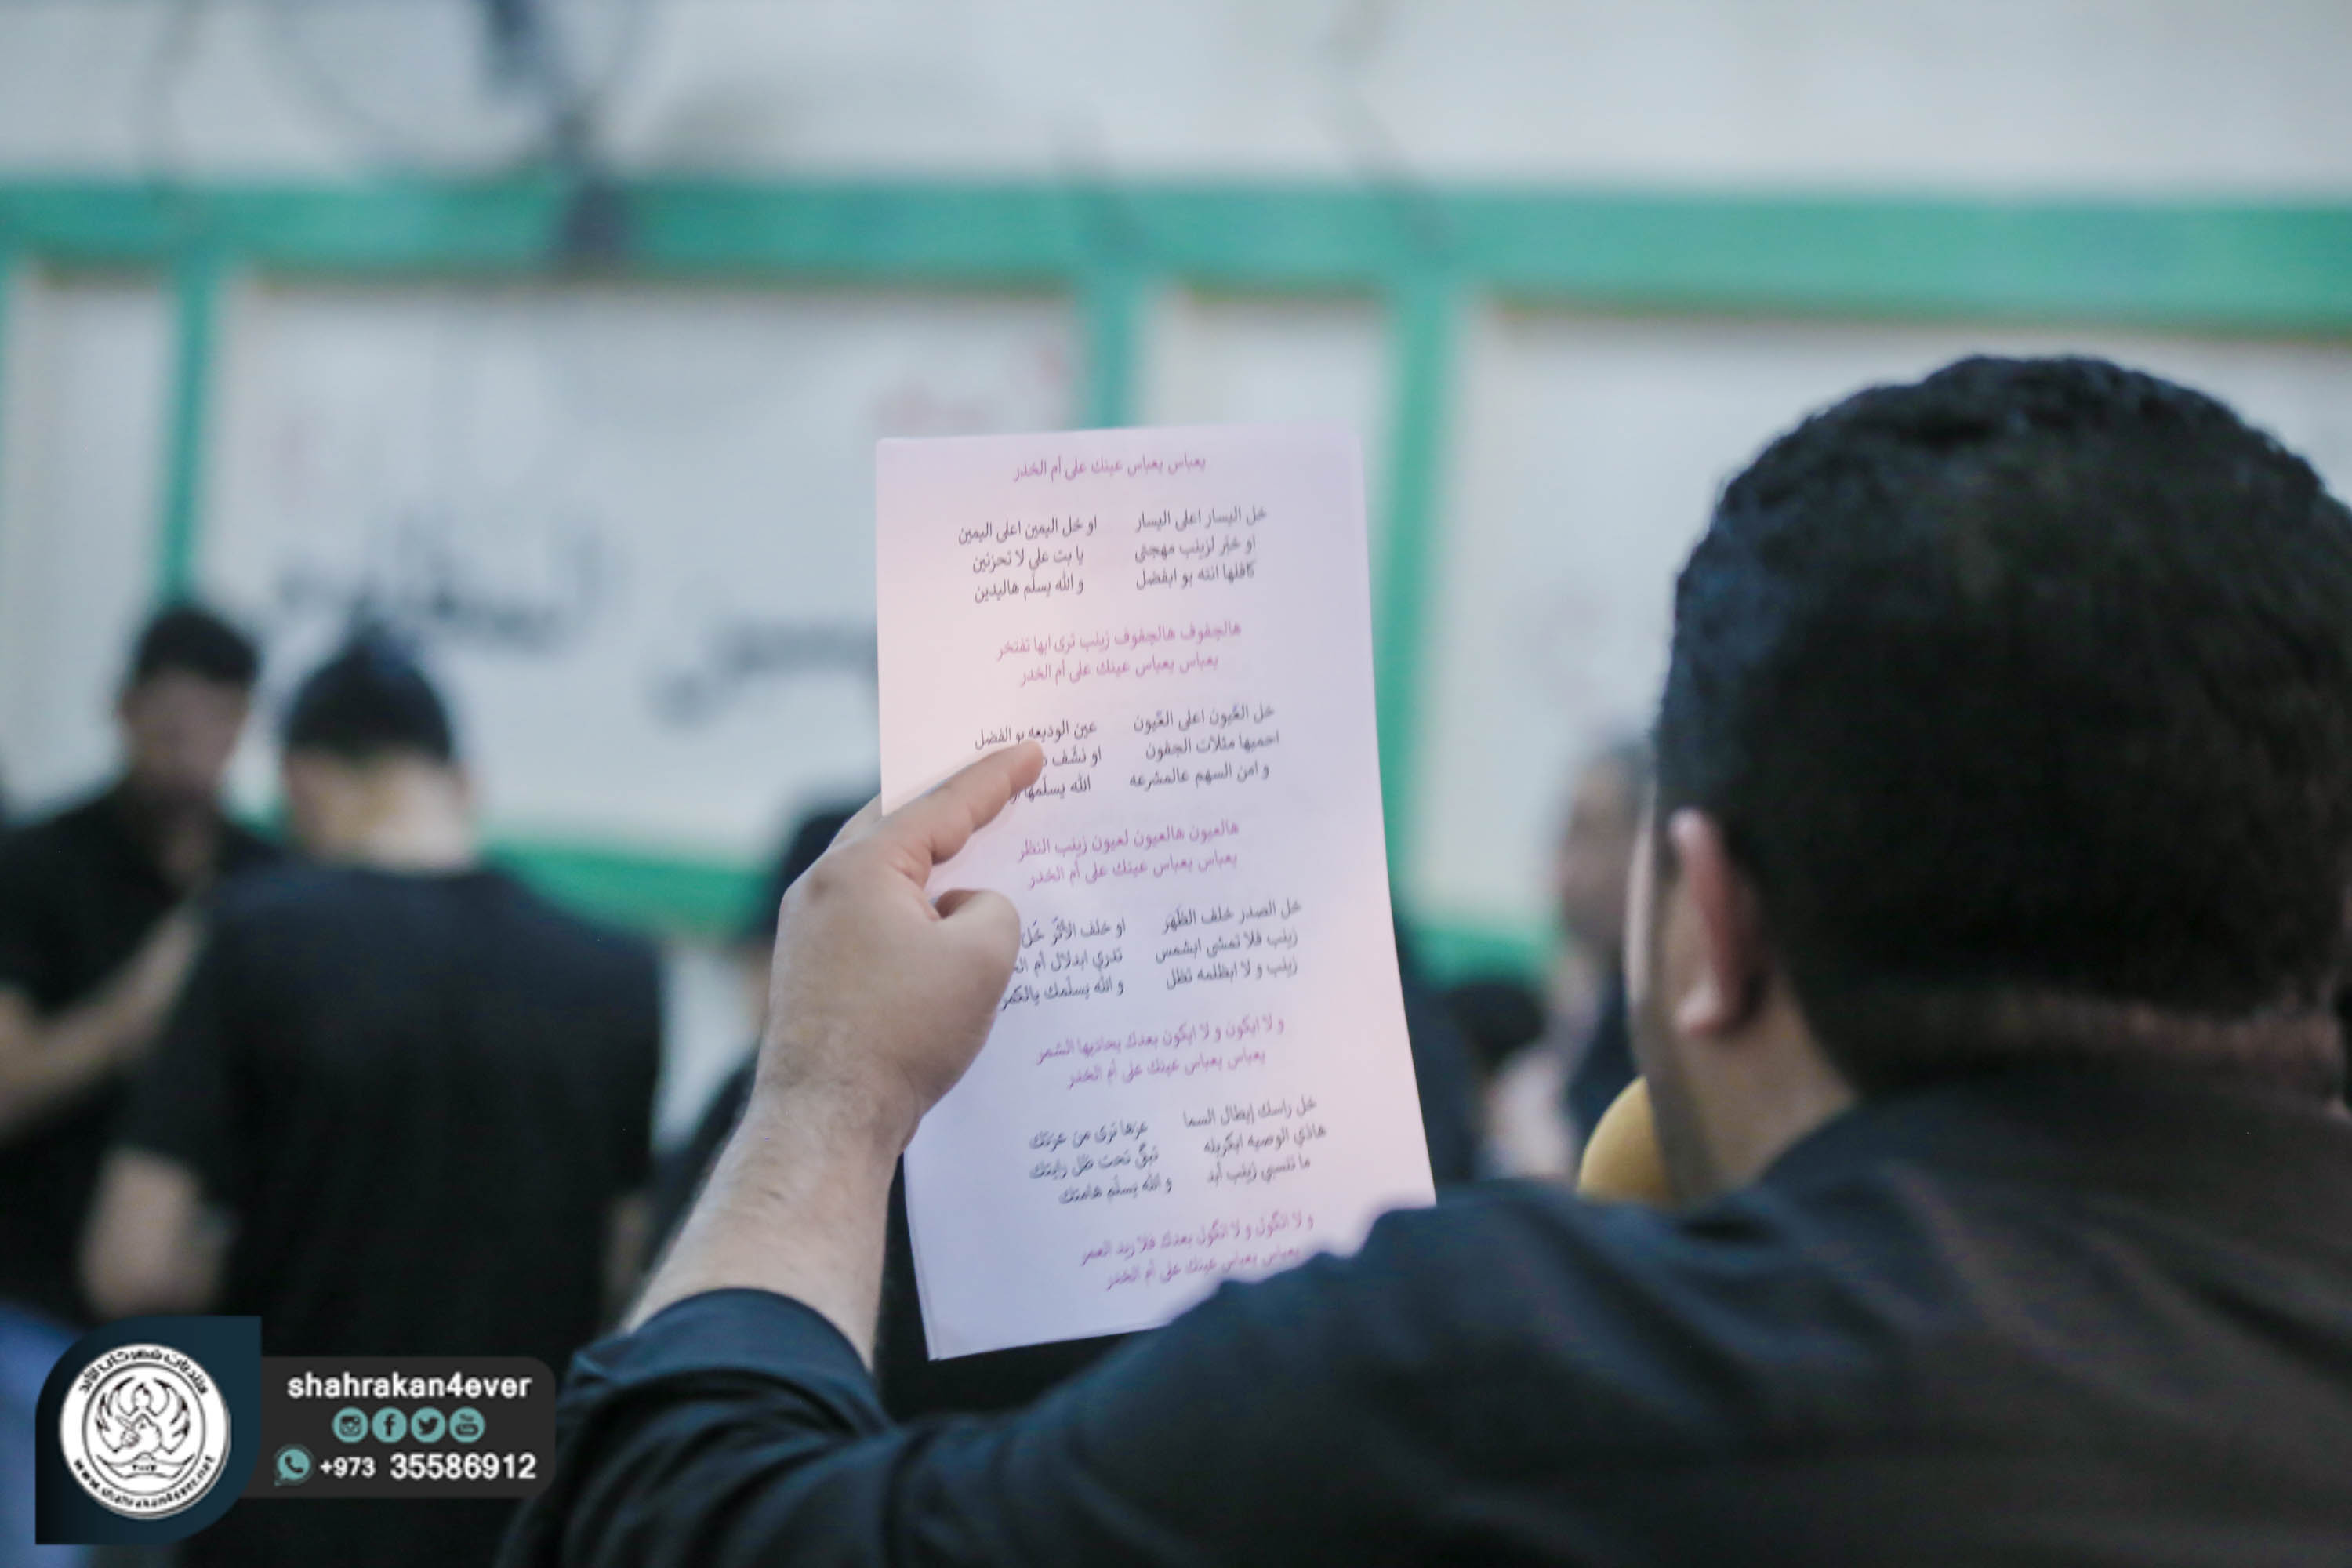 يعباس يعباس عينك على أم الخدر
خل اليسار اعلى اليسار او خل اليمين اعلى اليمين
او خبّر لزينب مهجتي يا بت علي لا تحزنين
كافلها انته بو ابفضل و الله يسلّم هاليدين
هالجفوف هالجفوف زينب ترى ابها تفتخر
يعباس يعباس عينك على أم الخدر
خل العيون اعلى العيون عين الوديعه بو الفضل
احميها مثلات الجفون او نشّف
و امن السهم عالمشرعه الله يسلّمها
هالعيون هالعيون لعيون زينب النظر
يعباس يعباس عينك على أم الخدر
خل الصدر خلف الظهر او خلف الأثر خل
زينب فلا تمشي ابشمس تدري ابدلال أم
زينب و لا ابظلمه تظل و الله يسلّمك يالكمر
و لا ايكون و لا ايكون بعدك يحاذيها الشمر
يعباس يعباس عينك على أم الخدر
خل راسك إيطال السما عزها ترى من عزتك
هاذي الوصيه ابكربله تبقى تحت ظل رايتك
ما تنسبي زينب أبد و الله يسلّم هامتك
و لا اتگول و لا اتگول بعدك فلا ريد العمر
يعباس يعباس عينك على أم الخدر
shahrakan4ever
+973 35586912
منتديات شهركان للأبد
www.shahrakan4ever.net